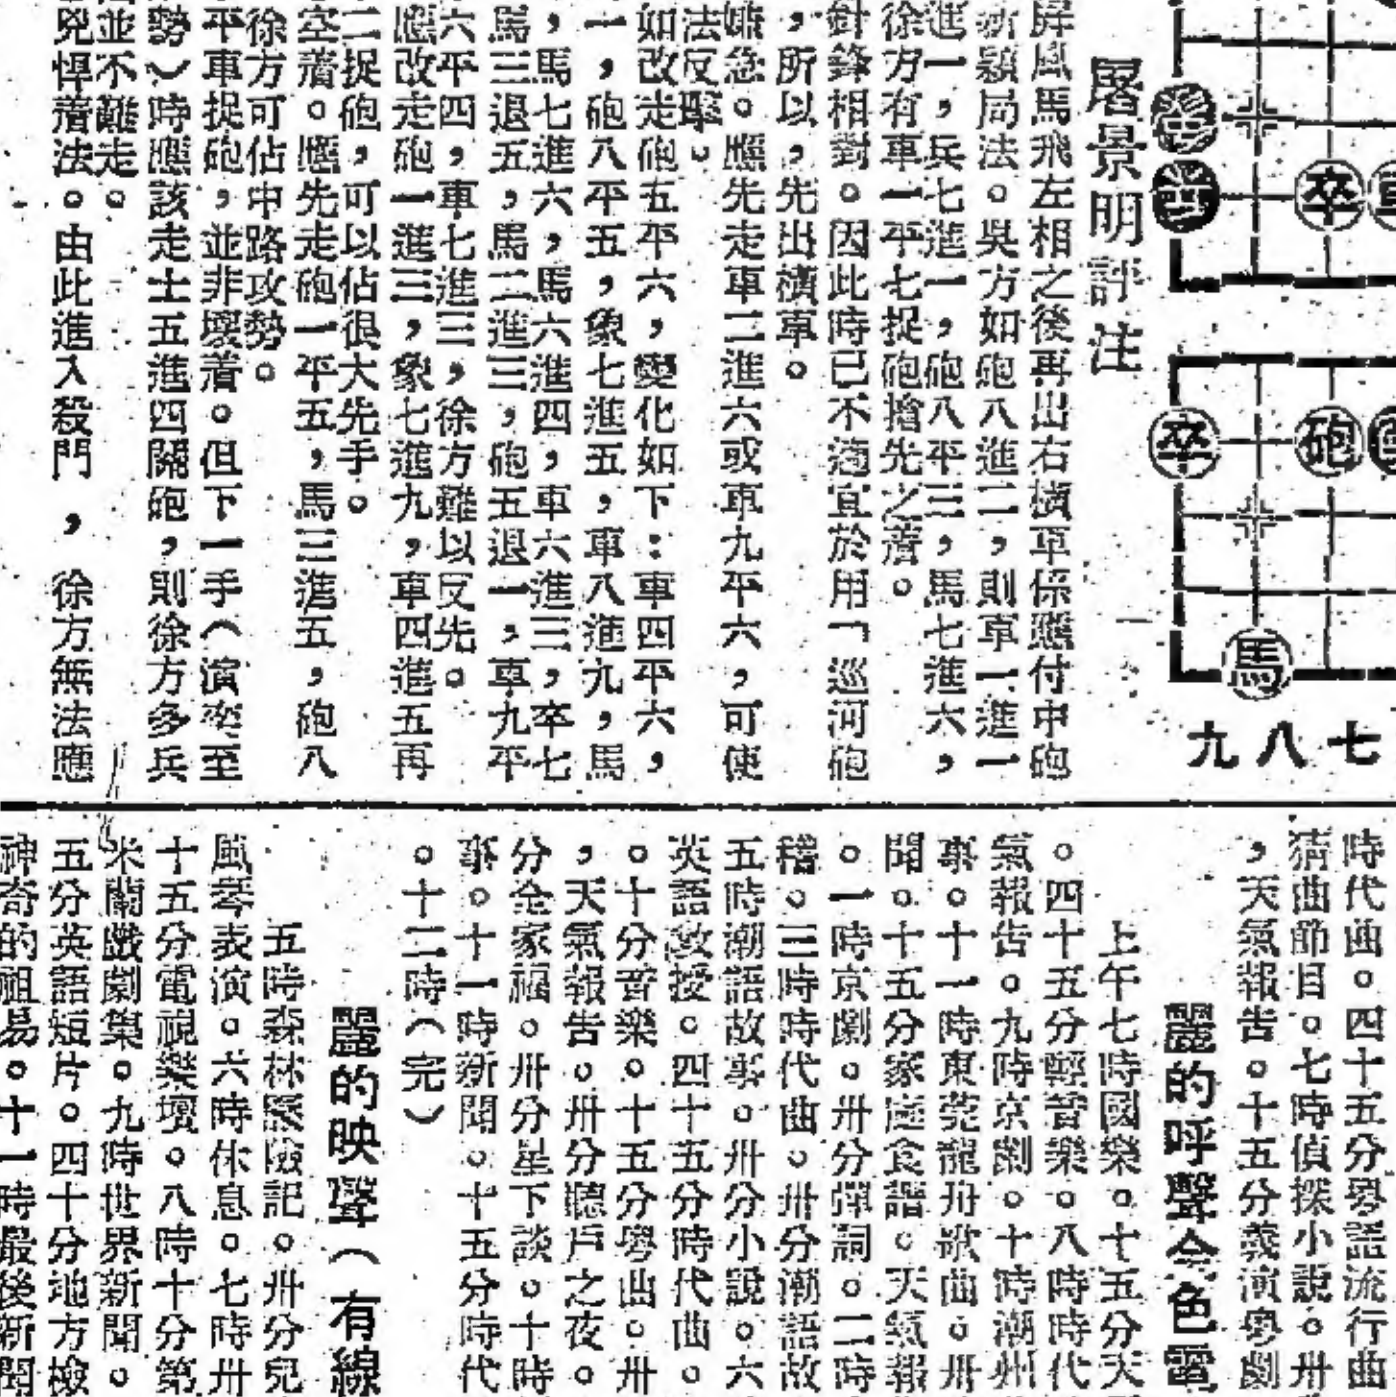 卒
卒
砲
馬
九八七
屠景明評注
屏風馬飛左相之後再出右橫車係應付中砲
新穎局法。吳方如砲八進二,則車一進一
進一,兵七進一,砲八平三,馬七進六,
徐方有車一平七捉砲搶先之着。
針鋒相對。因此時已不適宜於用「巡河砲
,所以,先出橫車。
嫌急。應先走車二進六或車九平六,可使
法反擊。
如改走砲五平六,變化如下:車四平六,
一,砲八平五,象七進五,車八進九,馬
,馬七進六,馬六進四,車六進三,卒七
馬三退五,馬二進三,砲五退一,車九平
六平四,車七進三,徐方難以反先。
應改走砲一進三,象七進九,車四進五再
二捉砲,可以佔很大先手。
空着。應先走砲一平五,馬三進五,砲八
徐方可佔中路攻勢。
平車捉砲,並非壞着。但下一手(演變至
勢)時應該走士五進四關砲,則徐方多兵
並不難走。
兇悍着法。由此進入殺門,徐方無法應
時代曲。四十五分粵語流行曲
猜曲節目。七時偵探小說。卅
,天氣報告。十五分義演粵劇
麗的呼聲金色電
上午七時國樂。十五分天
。四十五分輕音樂。八時時代
氣報告。九時京劇。十時潮州
事。十一時東莞龍舟歌曲。卅
聞。十五分家庭食譜。天氣報
。一時京劇。卅分彈詞。二時
稽。三時時代曲。卅分潮語故
五時潮語故事。卅分小說。六
英語教授。四十五分時代曲。
。十分音樂。十五分粵曲。卅
,天氣報告。卅分聽戶之夜。
分全家福。卅分星下談。十時
事。十一時新聞。十五分時代
。十二時(完)
麗的映聲(有線
五時森林歷險記。卅分兒
風琴表演。六時休息。七時卅
十五分電視樂壇。八時十分第
米蘭戲劇集。九時世界新聞。
五分英語短片。四十分地方檢
神奇的祖易。十一時最後新聞